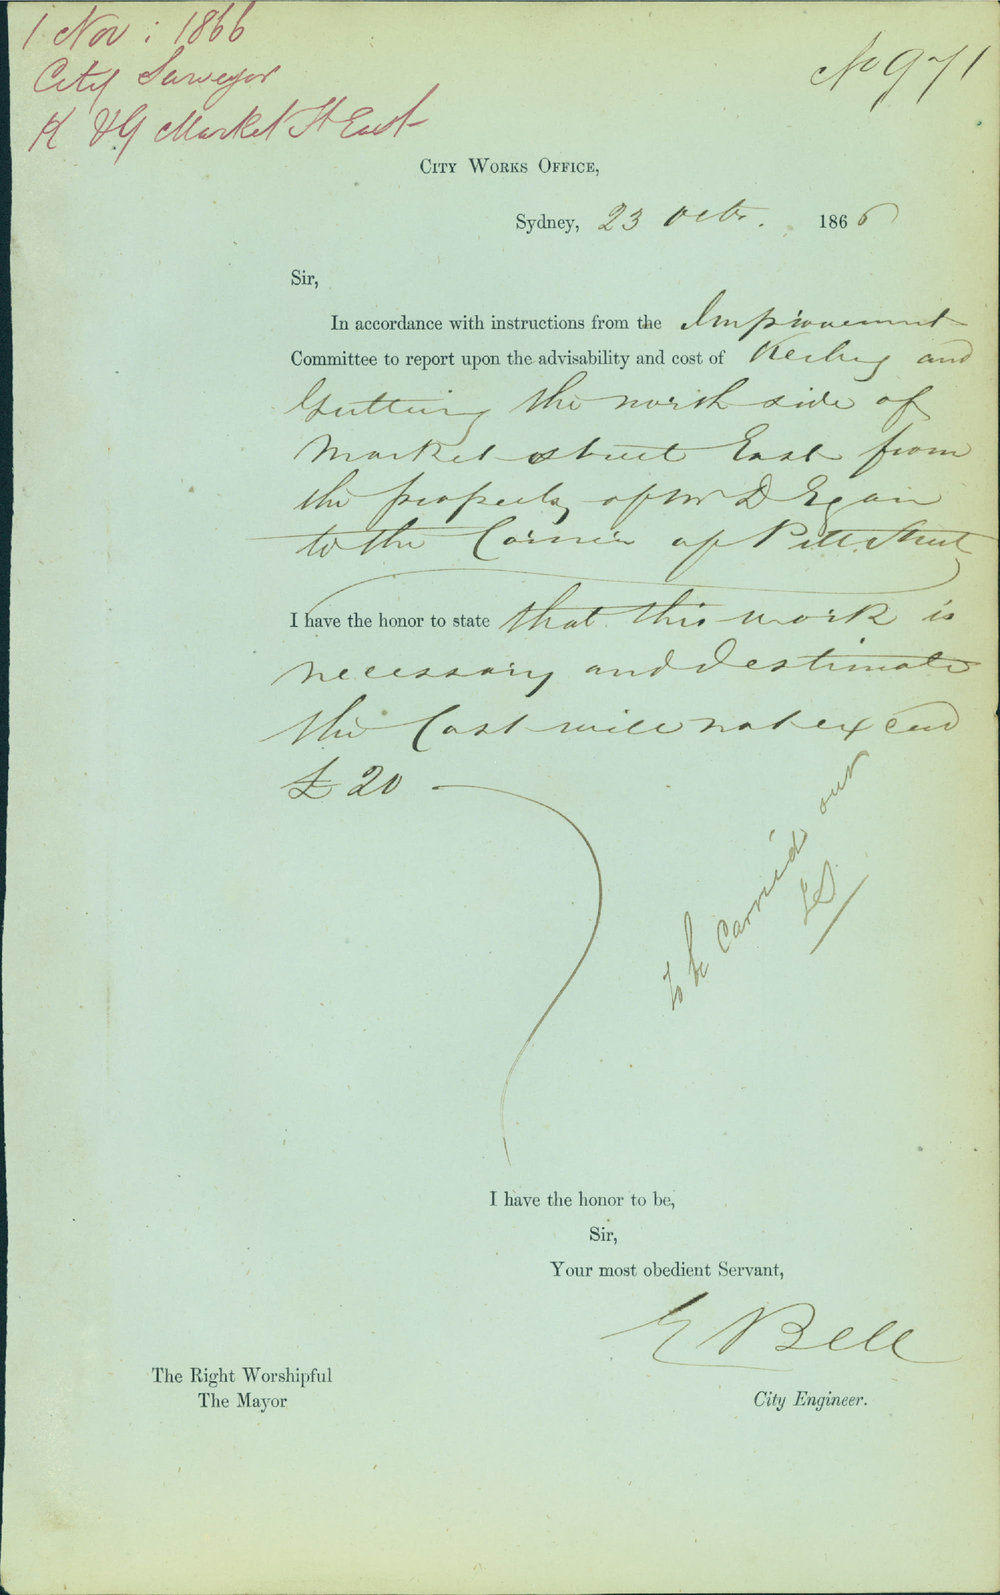 1 Nov : 1866
City Surveyor
K & G Market St East
No 971
City Works Office,
Sydney, 23 Octr. 1866
Sir,
In accordance with instructions from the Improvement
Committee to report upon the advisability and cost of Kerbing and
Guttering the north side of
Market street East from
the property of Mr D Egan
to the Corner of Pitt Street
I have the honor to state that this work is
necessary and I estimate
the Cost will not exceed
£20
To be Carried out
I have the honor to be,
Sir,
Your most obedient Servant,
E Bell
City Engineer.
The Right Worshipful
The Mayor